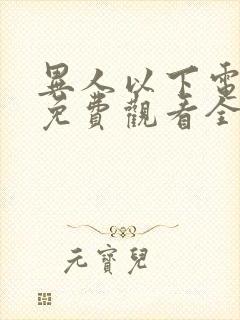 異人以下電
免費觀看全
元寶兒